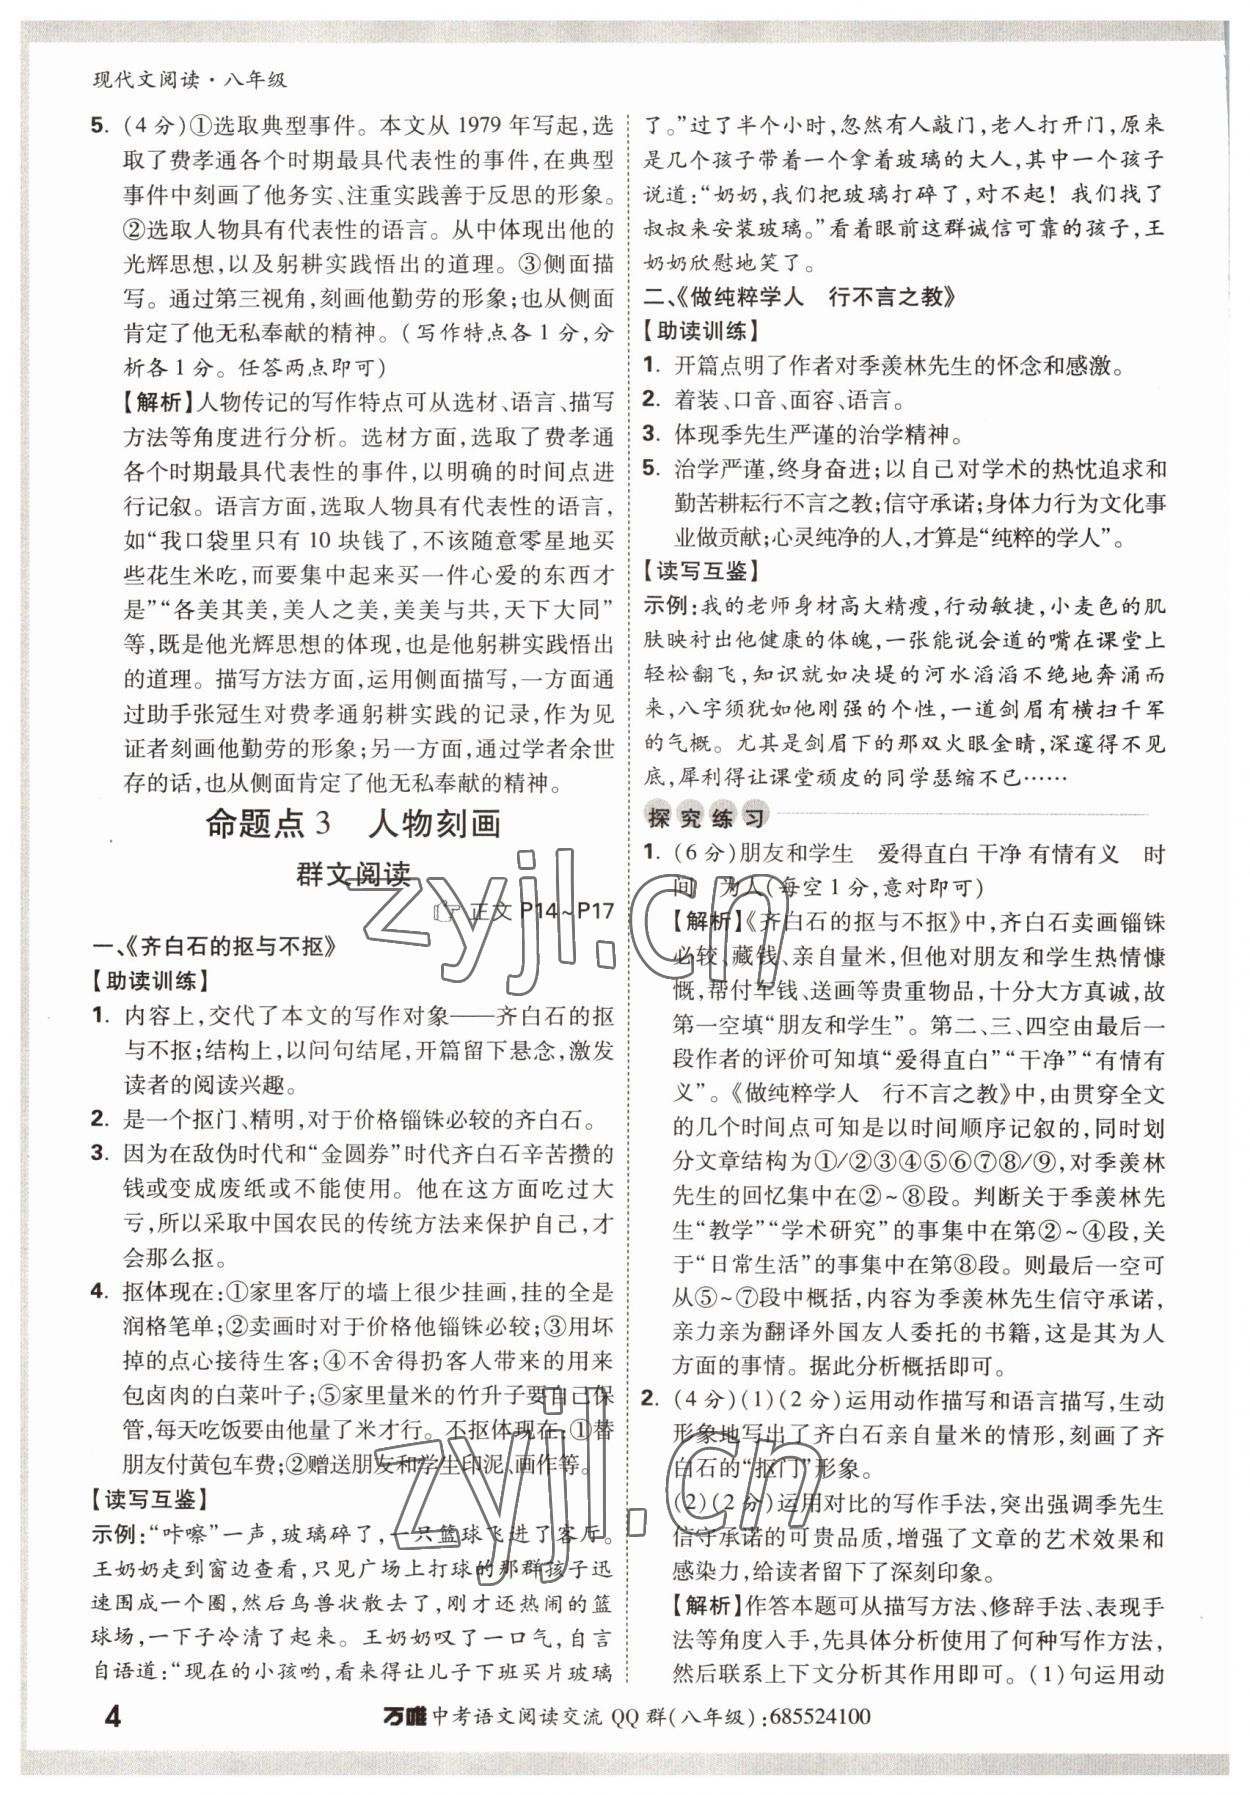 现代文阅读·八年级
5. (4分)①选取典型事件。本文从1979年写起,选
取了费孝通各个时期最具代表性的事件,在典型
事件中刻画了他务实、注重实践善于反思的形象。
②选取人物具有代表性的语言。从中体现出他的
光辉思想,以及躬耕实践悟出的道理。③侧面描
写。通过第三视角,刻画他勤劳的形象;也从侧面
肯定了他无私奉献的精神。(写作特点各1分,分
析各1分。任答两点即可)
【解析】人物传记的写作特点可从选材、语言、描写
方法等角度进行分析。选材方面,选取了费孝通
各个时期最具代表性的事件,以明确的时间点进
行记叙。语言方面,选取人物具有代表性的语言,
如“我口袋里只有10块钱了,不该随意零星地买
些花生米吃,而要集中起来买一件心爱的东西才
是”“各美其美,美人之美,美美与共,天下大同”
等,既是他光辉思想的体现,也是他躬耕实践悟出
的道理。描写方法方面,运用侧面描写,一方面通
过助手张冠生对费孝通躬耕实践的记录,作为见
证者刻画他勤劳的形象;另一方面,通过学者余世
存的话,也从侧面肯定了他无私奉献的精神。
命题点3 人物刻画
群文阅读
正文P14~P17
一、《齐白石的抠与不抠》
【助读训练】
1. 内容上,交代了本文的写作对象——齐白石的抠
与不抠;结构上,以问句结尾,开篇留下悬念,激发
读者的阅读兴趣。
2. 是一个抠门、精明,对于价格锱铢必较的齐白石。
3. 因为在敌伪时代和“金圆券”时代齐白石辛苦攒的
钱或变成废纸或不能使用。他在这方面吃过大
亏,所以采取中国农民的传统方法来保护自己,才
会那么抠。
4. 抠体现在:①家里客厅的墙上很少挂画,挂的全是
润格笔单;②卖画时对于价格他锱铢必较;③用坏
掉的点心接待生客;④不舍得扔客人带来的用来
包卤肉的白菜叶子;⑤家里量米的竹升子要自己保
管,每天吃饭要由他量了米才行。不抠体现在:①替
朋友付黄包车费;②赠送朋友和学生印泥、画作等。
【读写互鉴】
示例:“咔嚓”一声,玻璃碎了,一只篮球飞进了客厅。
王奶奶走到窗边查看,只见广场上打球的那群孩子迅
速围成一个圈,然后鸟兽状散去了,刚才还热闹的篮
球场,一下子冷清了起来。王奶奶叹了一口气,自言
自语道:“现在的小孩哟,看来得让儿子下班买片玻璃
了。”过了半个小时,忽然有人敲门,老人打开门,原来
是几个孩子带着一个拿着玻璃的大人,其中一个孩子
说道:“奶奶,我们把玻璃打碎了,对不起!我们找了
叔叔来安装玻璃。”看着眼前这群诚信可靠的孩子,王
奶奶欣慰地笑了。
二、《做纯粹学人 行不言之教》
【助读训练】
1. 开篇点明了作者对季羡林先生的怀念和感激。
2. 着装、口音、面容、语言。
3. 体现季先生严谨的治学精神。
5. 治学严谨,终身奋进;以自己对学术的热忱追求和
勤苦耕耘行不言之教;信守承诺;身体力行为文化事
业做贡献;心灵纯净的人,才算是“纯粹的学人”。
【读写互鉴】
示例:我的老师身材高大精瘦,行动敏捷,小麦色的肌
肤映衬出他健康的体魄,一张能说会道的嘴在课堂上
轻松翻飞,知识就如决堤的河水滔滔不绝地奔涌而
来,八字须犹如他刚强的个性,一道剑眉有横扫千军
的气概。尤其是剑眉下的那双火眼金睛,深邃得不见
底,犀利得让课堂顽皮的同学瑟缩不已……
探究练习
1. (6分)朋友和学生 爱得直白 干净 有情有义 时
间 为人(每空1分,意对即可)
【解析】《齐白石的抠与不抠》中,齐白石卖画锱铢
必较、藏钱、亲自量米,但他对朋友和学生热情慷
慨,帮付车钱、送画等贵重物品,十分大方真诚,故
第一空填“朋友和学生”。第二、三、四空由最后一
段作者的评价可知填“爱得直白”“干净”“有情有
义”。《做纯粹学人 行不言之教》中,由贯穿全文
的几个时间点可知是以时间顺序记叙的,同时划
分文章结构为①/②③④⑤⑥⑦⑧/⑨,对季羡林
先生的回忆集中在②~⑧段。判断关于季羡林先
生“教学”“学术研究”的事集中在第②~④段,关
于“日常生活”的事集中在第⑧段。则最后一空可
从⑤~⑦段中概括,内容为季羡林先生信守承诺,
亲力亲为翻译外国友人委托的书籍,这是其为人
方面的事情。据此分析概括即可。
2. (4分)(1)(2分)运用动作描写和语言描写,生动
形象地写出了齐白石亲自量米的情形,刻画了齐
白石的“抠门”形象。
(2)(2分)运用对比的写作手法,突出强调季先生
信守承诺的可贵品质,增强了文章的艺术效果和
感染力,给读者留下了深刻印象。
【解析】作答本题可从描写方法、修辞手法、表现手
法等角度入手,先具体分析使用了何种写作方法,
然后联系上下文分析其作用即可。(1)句运用动
4
万唯中考语文阅读交流QQ群(八年级):685524100
zyjl.cn
zyjl.cn